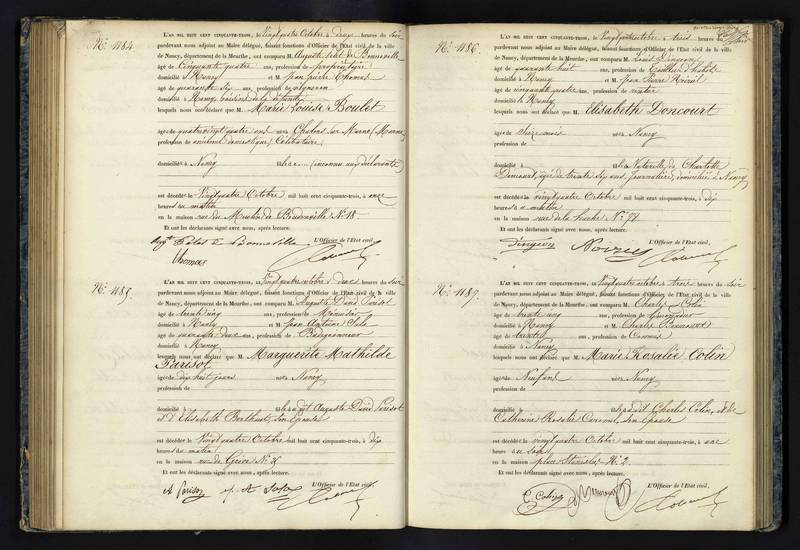 N.° 1184.
L'AN MIL HUIT CENT CINQUANTE-TROIS, le Vingt quatre Octobre à deux heures du soir
pardevant nous adjoint au Maire délégué, faisant fonctions d'Officier de l'Etat civil de la ville
de Nancy, département de la Meurthe, ont comparu M. Auguste de Bonneville
âgé de Cinquante quatre ans, profession de propriétaire
domicilié à Nancy et M. Jean pierre Thomas
âgé de quarante six ans, profession de vigneron
domicilié à Nancy, voisins de la défunte
lesquels nous ont déclaré que M. Marie Louise Boulet
âgée de quatre vingt quatre ans née à Chalons sur Marne (Marne)
profession de ancienne domestique, Célibataire,
domiciliée à Nancy fille de ... (inconnu aux déclarants)
est décédée le Vingt quatre Octobre mil huit cent cinquante-trois, à onze
heures du matin
en la maison rue du Moulin de Boudonville N.° 18
Et ont les déclarants signé avec nous, après lecture.
L'Officier de l'Etat civil,
Thomas
N.° 1185.
L'AN MIL HUIT CENT CINQUANTE-TROIS, le Vingt quatre octobre à deux heures du soir
pardevant nous adjoint au Maire délégué, faisant fonctions d'Officier de l'Etat civil de la ville
de Nancy, département de la Meurthe, ont comparu M. Auguste David Parisot
âgé de trente cinq ans, profession de Menuisier
domicilié à Nancy et M. Jean Antoine
âgé de quarante deux ans, profession de Badigeonneur
domicilié à Nancy
lesquels nous ont déclaré que M. Marguerite Mathilde
Parisot
âgée de dix huit jours née à Nancy
profession de
domicilié à fille de dit Auguste David Parisot
et d'Elisabeth Berthaut, son Epouse
est décédée le Vingt quatre Octobre mil huit cent cinquante-trois, à dix
heures du matin
en la maison rue de Grève N.°
Et ont les déclarants signé avec nous, après lecture.
L'Officier de l'Etat civil,
A Parisot
N.° 1186.
L'AN MIL HUIT CENT CINQUANTE-TROIS, le Vingt quatre octobre à trois heures du soir
pardevant nous adjoint au Maire délégué, faisant fonctions d'Officier de l'Etat civil de la ville
de Nancy, département de la Meurthe, ont comparu M. Louis
âgé de quarante huit ans, profession de Tailleur d'habits
domicilié à Nancy et M. Jean Pierre
âgé de cinquante quatre ans, profession de
domicilié à Nancy
lesquels nous ont déclaré que M. Elisabeth Doncourt
âgée de Seize mois née à Nancy
profession de
domicilié à fille Naturelle de Charlotte
Doncourt, âgée de trente six ans, journalière, domiciliée à Nancy
est décédée le vingt quatre Octobre mil huit cent cinquante-trois, à dix
heures du matin
en la maison rue de la N.°
Et ont les déclarants signé avec nous, après lecture.
L'Officier de l'Etat civil,
N.° 1187.
L'AN MIL HUIT CENT CINQUANTE-TROIS, le Vingt quatre octobre à trois heures du soir
pardevant nous adjoint au Maire délégué, faisant fonctions d'Officier de l'Etat civil de la ville
de Nancy, département de la Meurthe, ont comparu M. Charles Colin
âgé de trente cinq ans, profession de
domicilié à Nancy et M. Charles
âgé de trente ans, profession de
domicilié à Nancy
lesquels nous ont déclaré que M. Marie Rosalie Colin
âgée de Neuf ans née à Nancy
profession de
domicilié à fille dudit Charles Colin, et de
Catherine Rosalie son Epouse
est décédée le vingt quatre Octobre mil huit cent cinquante-trois, à une
heure du soir
en la maison place Stanislas N.° 2
Et ont les déclarants signé avec nous, après lecture.
L'Officier de l'Etat civil,
C. Colin